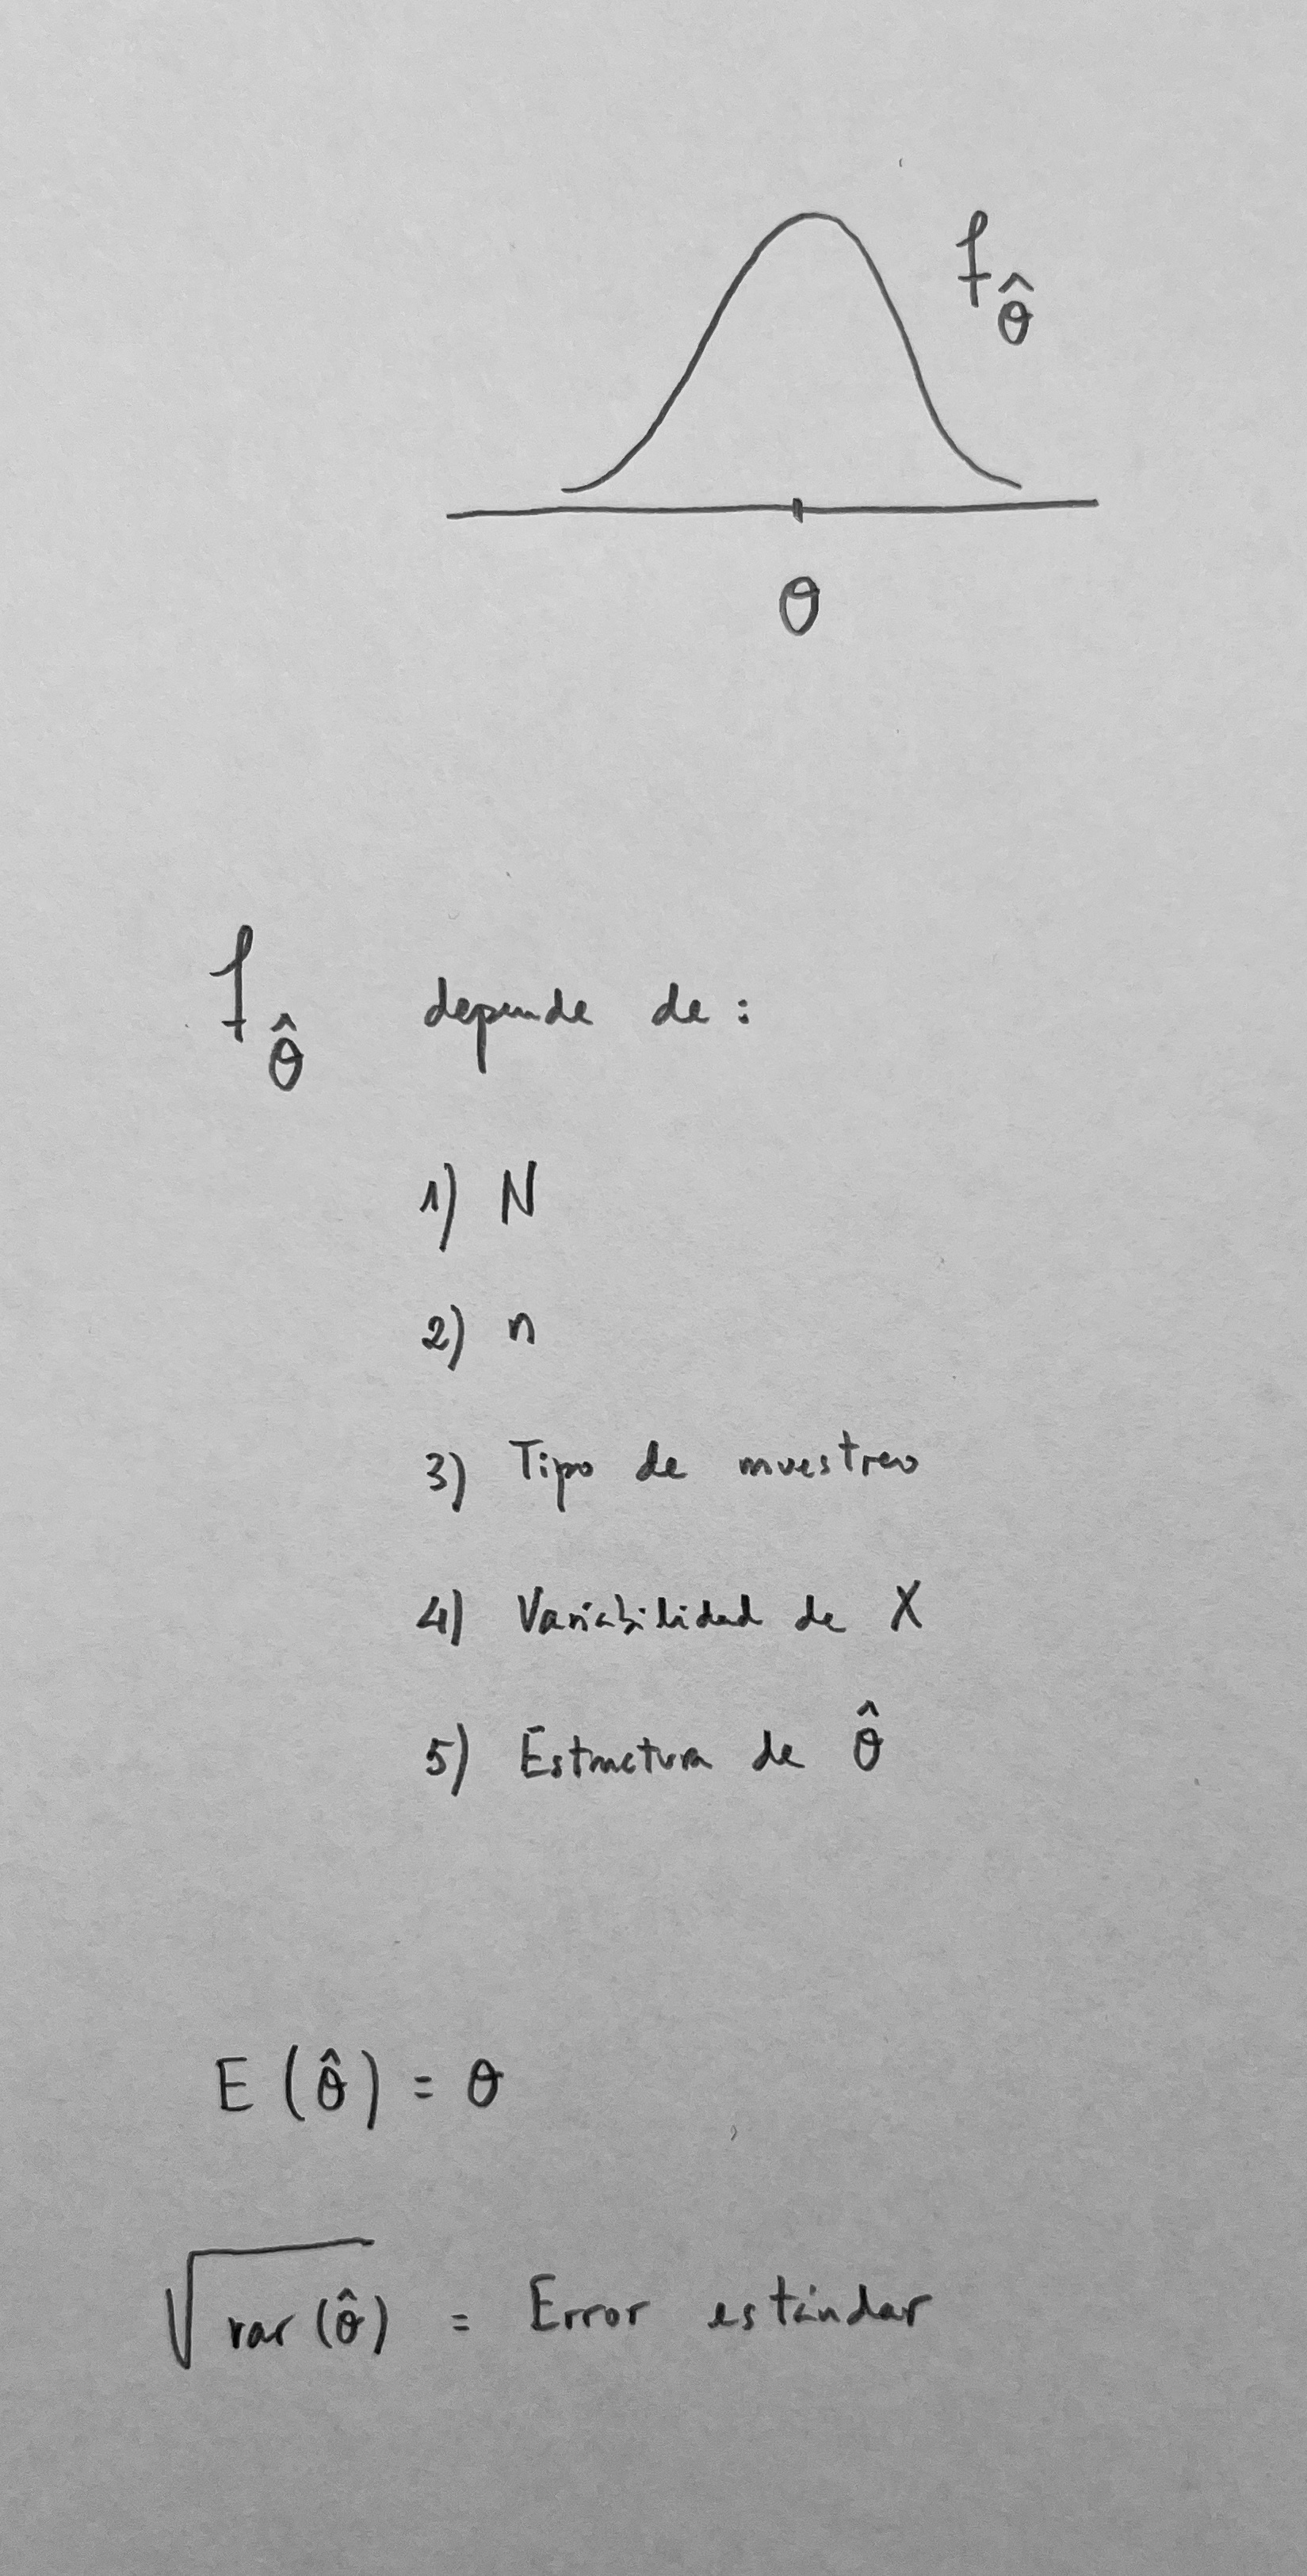 f_θ̂
θ
f_θ̂ depende de:
1) N
2) n
3) Tipo de muestreo
4) Variabilidad de X
5) Estructura de θ̂
E(θ̂) = θ
√var(θ̂) = Error estándar